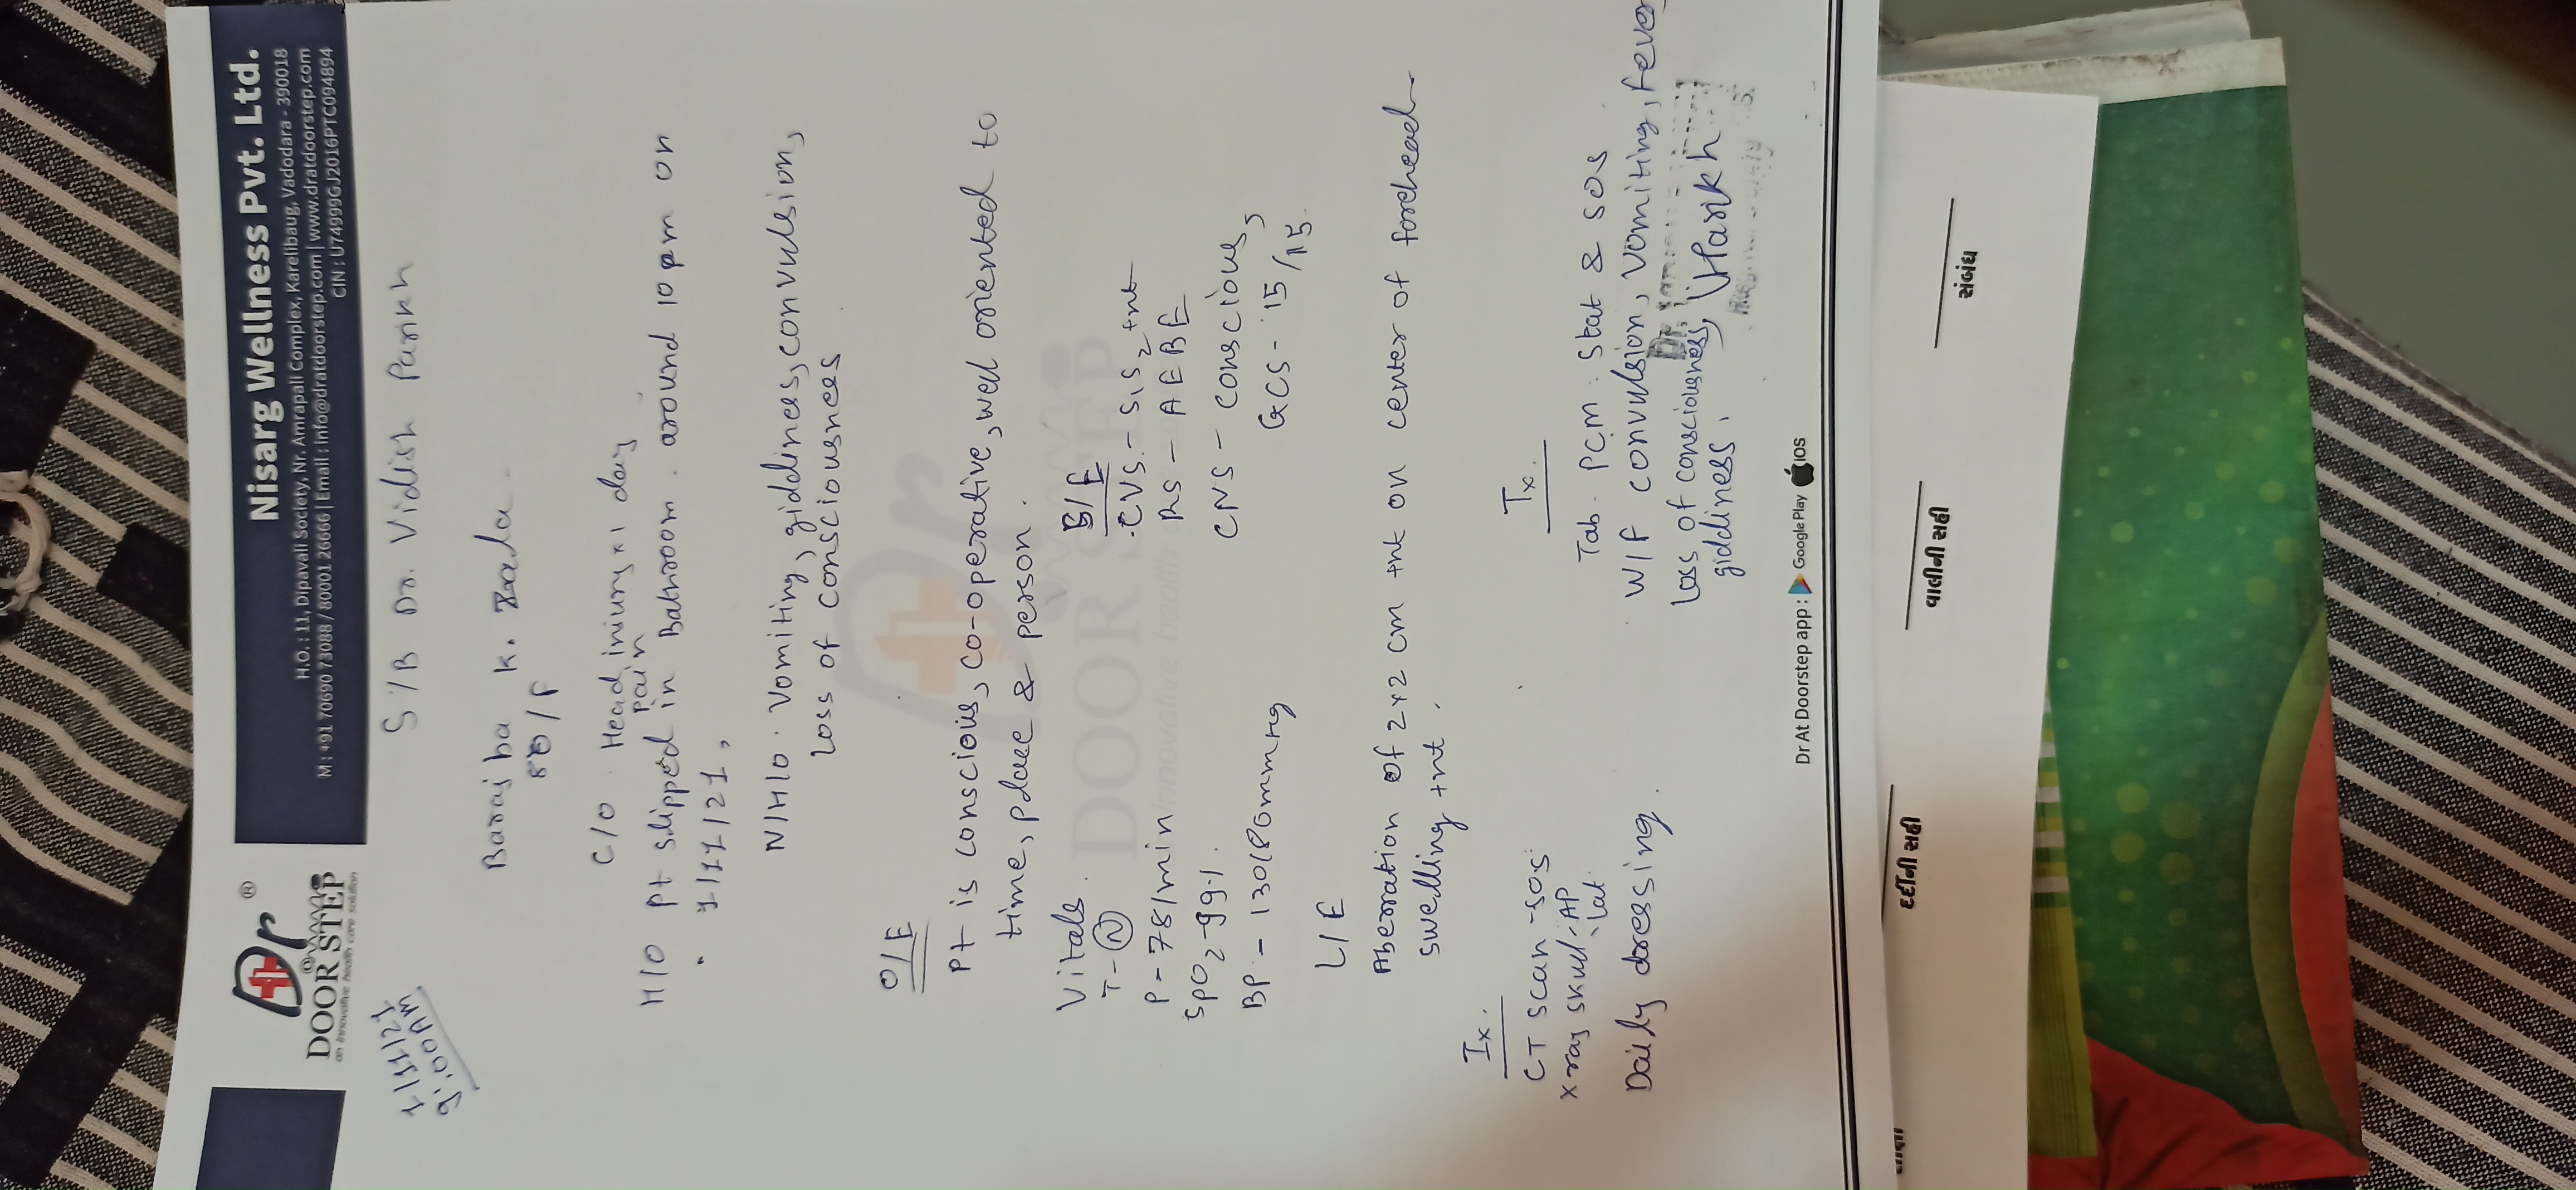 Dr ®
DOOR STEP
an innovative health care solution
Nisarg Wellness Pvt. Ltd.
H.O. : 11, Dipavali Society, Nr. Amrapali Complex, Karelibaug, Vadodara - 390018
M : +91 70690 73088 / 80001 26666 | Email : info@dratdoorstep.com | www.dratdoorstep.com
CIN : U74999GJ2016PTC094894
9:00 AM
S/B Dr. Vidish Parikh
K.
80/F
C/O Head injury x 1 day
pain
H/O Pt slipped in Bathroom. around 10 pm on
1/11/21,
N/H/O. Vomiting, giddines, convulsion,
Loss of consciousnees
O/E
Pt is conscious, co-operative, well oriented to
time, place & person.
Vitals.
T - N
P - 78/min
SpO2 - 99%
BP - 130/80mmHg
S/E
CVS - S1S2 +nt
RS - AEBE
CNS - conscious,
GCS - 15/15.
L/E
Aberration of 2x2 cm +nt on center of forehead
swelling +nt.
Ix.
CT scan - SOS
X ray skull - AP
- lat.
Daily dressing.
Tx.
Tab. PCM. stat & SOS
W/F convulsion, vomiting, fever
Loss of consciousness,
giddiness.
Dr.
Dr At Doorstep app : Google Play iOS
દર્દીની સહી
વાલીની સહી
સંબંધ